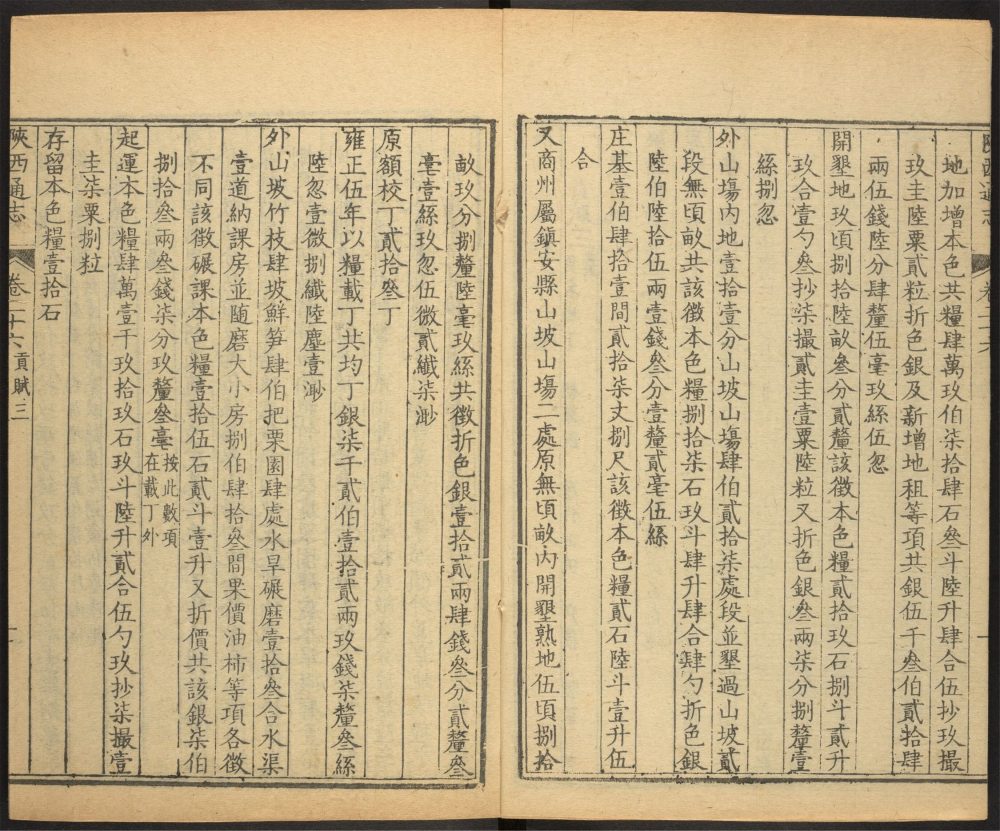 陝西通志 卷二十六
地加增本色共糧肆萬玖伯柒拾肆石叁斗陸升肆合伍抄玖撮
玖圭陸粟貳粒折色銀及新增地租等項共銀伍千叁伯貳拾肆
兩伍錢陸分肆釐伍毫玖絲伍忽
開墾地玖頃捌拾陸畝叁分貳釐該徵本色糧貳拾玖石捌斗貳升
玖合壹勺叁抄柒撮貳圭壹粟陸粒又折色銀叁兩柒分捌釐壹
絲捌忽
外山場內地壹拾壹分山坡山塲肆伯貳拾柒處段並墾過山坡貳
段無頃畝共該徵本色糧捌拾柒石玖斗肆升肆合肆勺折色銀
陸伯陸拾伍兩壹錢叁分壹釐貳毫伍絲
庄基壹伯肆拾壹間貳拾柒丈捌尺該徵本色糧貳石陸斗壹升伍
合
又商州屬鎮安縣山坡山塲二處原無頃畝內開墾熟地伍頃捌拾
畝玖分捌釐陸毫玖絲共徵折色銀壹拾貳兩肆錢叁分貳釐叁
毫壹絲玖忽伍微貳纖柒渺
原額校丁貳拾叁丁
雍正伍年以糧載丁共均丁銀柒千貳伯壹拾貳兩玖錢柒釐叁絲
陸忽壹微捌纖陸塵壹渺
外山坡竹枝肆坡鮮笋肆伯把栗園肆處水旱碾磨壹拾叁合水渠
壹道納課房並随磨大小房捌伯肆拾叁間果價油柿等項各徵
不同該徵碾課本色糧壹拾伍石貳斗壹升又折價共該銀柒伯
捌拾叁兩叁錢柒分玖釐叁毫按此數項在載丁外
起運本色糧肆萬壹千玖拾玖石玖斗陸升貳合伍勺玖抄柒撮壹
圭柒粟捌粒
存留本色糧壹拾石
陝西通志 卷二十六 貢賦三 一